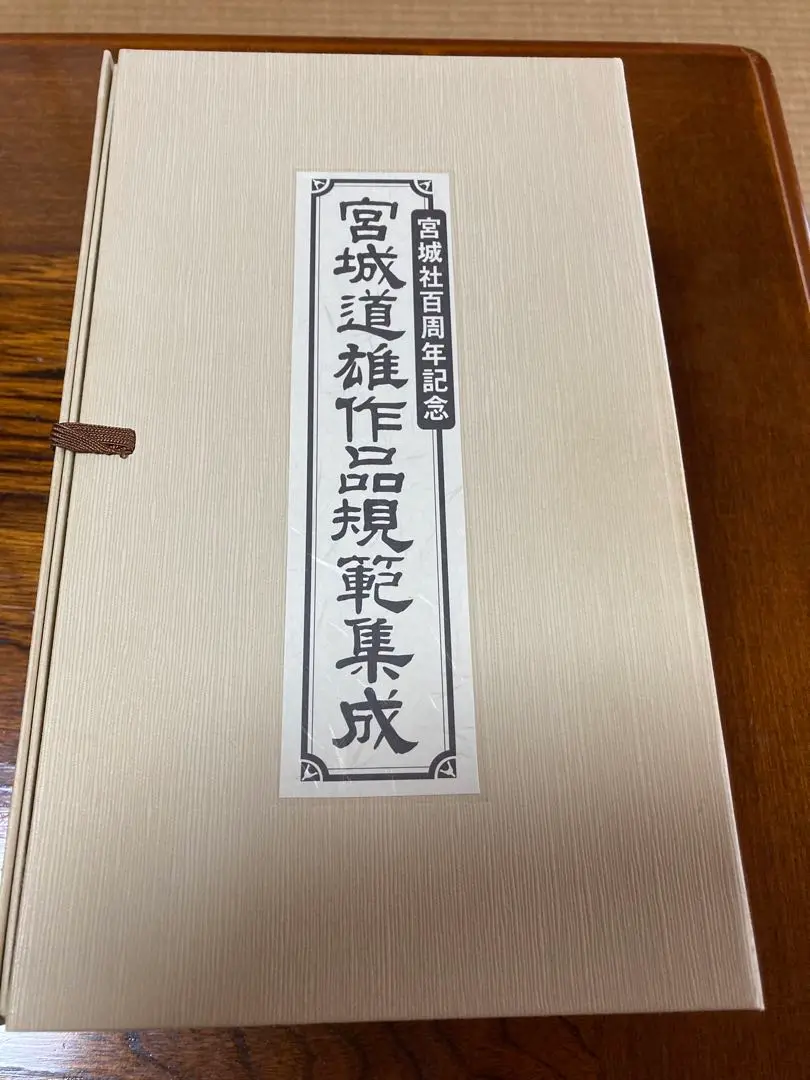 宮城社百周年記念
宮城道雄作品規範集成